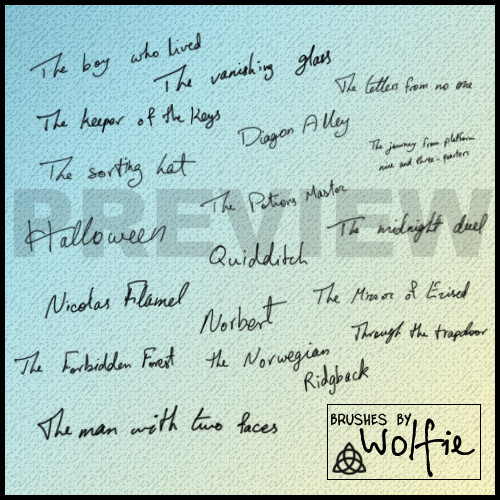 The boy who lived
The vanishing glass
The letters from no one
The keeper of the keys
Diagon Alley
The journey from platform
nine and three-quarters
The sorting hat
The Potions Master
PREVIEW
Halloween
The midnight duel
Quidditch
Nicolas Flamel
The Mirror of Erised
Norbert
Through the trapdoor
The Forbidden Forest
the Norwegian
Ridgback
The man with two faces
BRUSHES BY
Wolfie